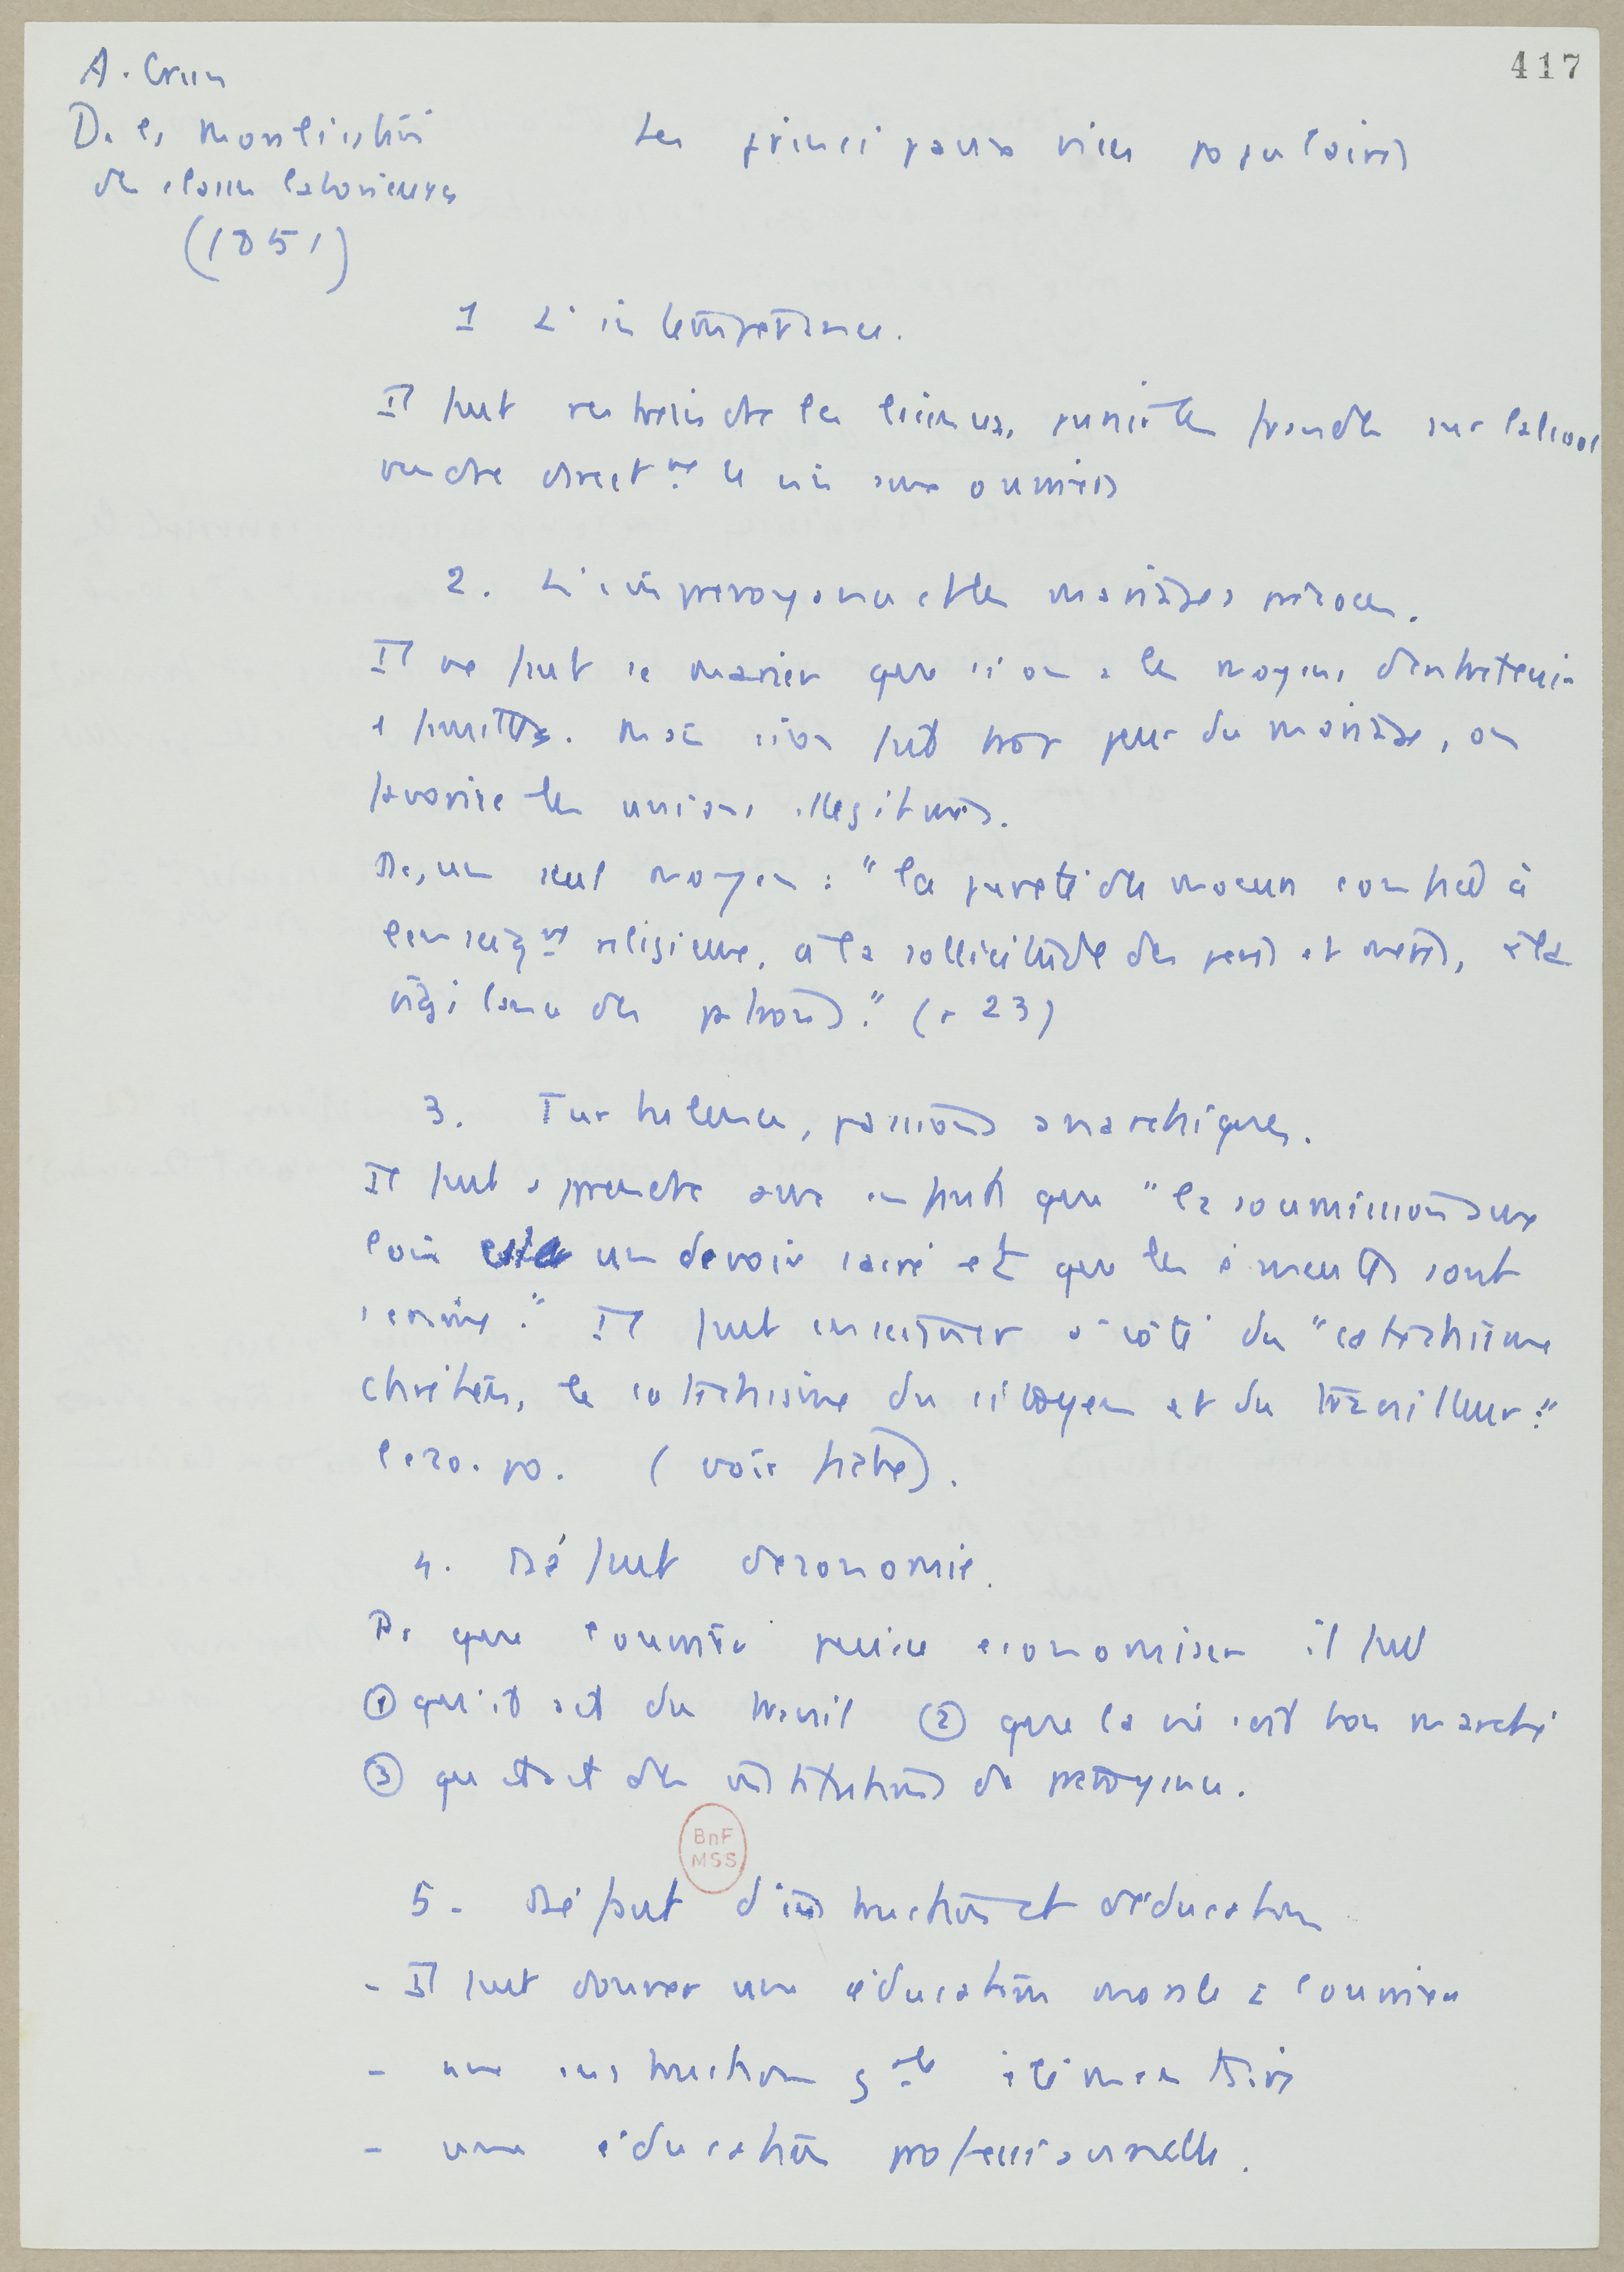 417
A. Grün
De la moralisation
des classes laborieuses
(1851)
Les principaux vices populaires
1 L'intempérance.
Il faut restreindre les licences, punir les fraudes sur l'alcool
vendre direct.mt le vin aux ouvriers
2. L'imprévoyance et les mariages précoces.
Il ne faut se marier que si on a les moyens d'entretenir
1 famille. Mais si on fait trop peur du mariage, on
favorise les unions illégitimes.
Dc, un seul moyen : "la pureté des moeurs confiée à
l'enseigmt religieux, à la sollicitude des pères et mères, à la
vigilance des patrons." (p 23)
3. Turbulence, passions anarchiques.
Il faut apprendre aux enfants que "la soumission aux
lois est un devoir sacré et que les émeutes sont
1 crime." Il faut enseigner à côté du "catéchisme
chrétien, le catéchisme du citoyen et du travailleur."
l'éco. po. (voir fiche).
4. Défaut d'économie.
Pr que l'ouvrier puisse économiser il faut
① qu'il ait du travail ② que la vie soit bon marché
③ qu'il y ait des institutions de prévoyance.
BnF
MSS
5. Défaut d'instruction et d'éducation
- Il faut donner une éducation morale à l'ouvrier
- une instruction gale élémentaire
- une éducation professionnelle.